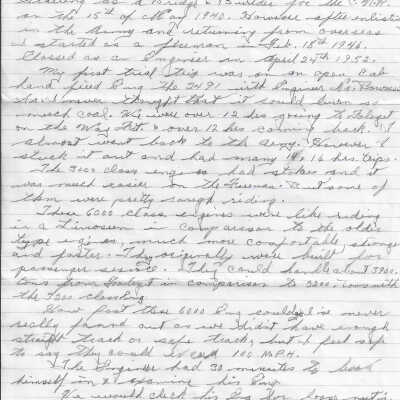 as a Bridge & Buildes for the C.N.R.
on the 15th of May 1940. However after enlisting
in the Army and returning from overseas
I started as a fireman in Feb. 18th 1946.
Classed as an Engineer in April 24th 1952.
My first trial trip was on an open Cab
hand fired Eng the 2191 with Engineer
I had never thought that it could burn so
much coal. We were over 12 hrs going to Foleyet
on the Way Frt. & over 12 hrs coming back. I
almost went back to the Army. However I
stuck it out and had many 14, 16 hrs trips.
The 3000 class engines had stokes and it
was much easier on the Fireman. But some of
them were pretty rough riding.
These 6000 class engines were like riding
in a Limosen in comparison to the older
type engines, much more comfortable, stronger
and faster. They originally were built for
passenger service. They could handle about 3900
tons from Foleyet in comparison to 3200 tons with
the 3200 classing.
How fast these 6000 Eng could go I've never
really found out as we didn't have enough
straight track or safe track, but I feel safe
to say they could exceed 100 M.P.H.
The Engineer had 30 minutes to book
himself in & examine his Eng.
He would check his Eng for loose nuts